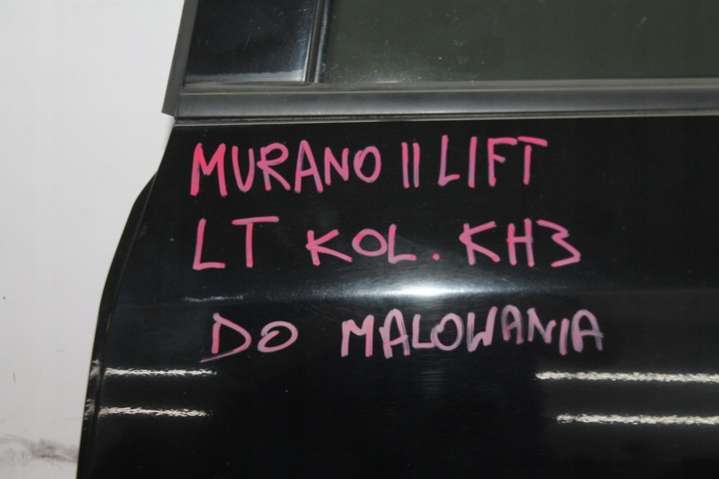 MURANO II LIFT
LT KOL. KH3
DO MALOWANIA